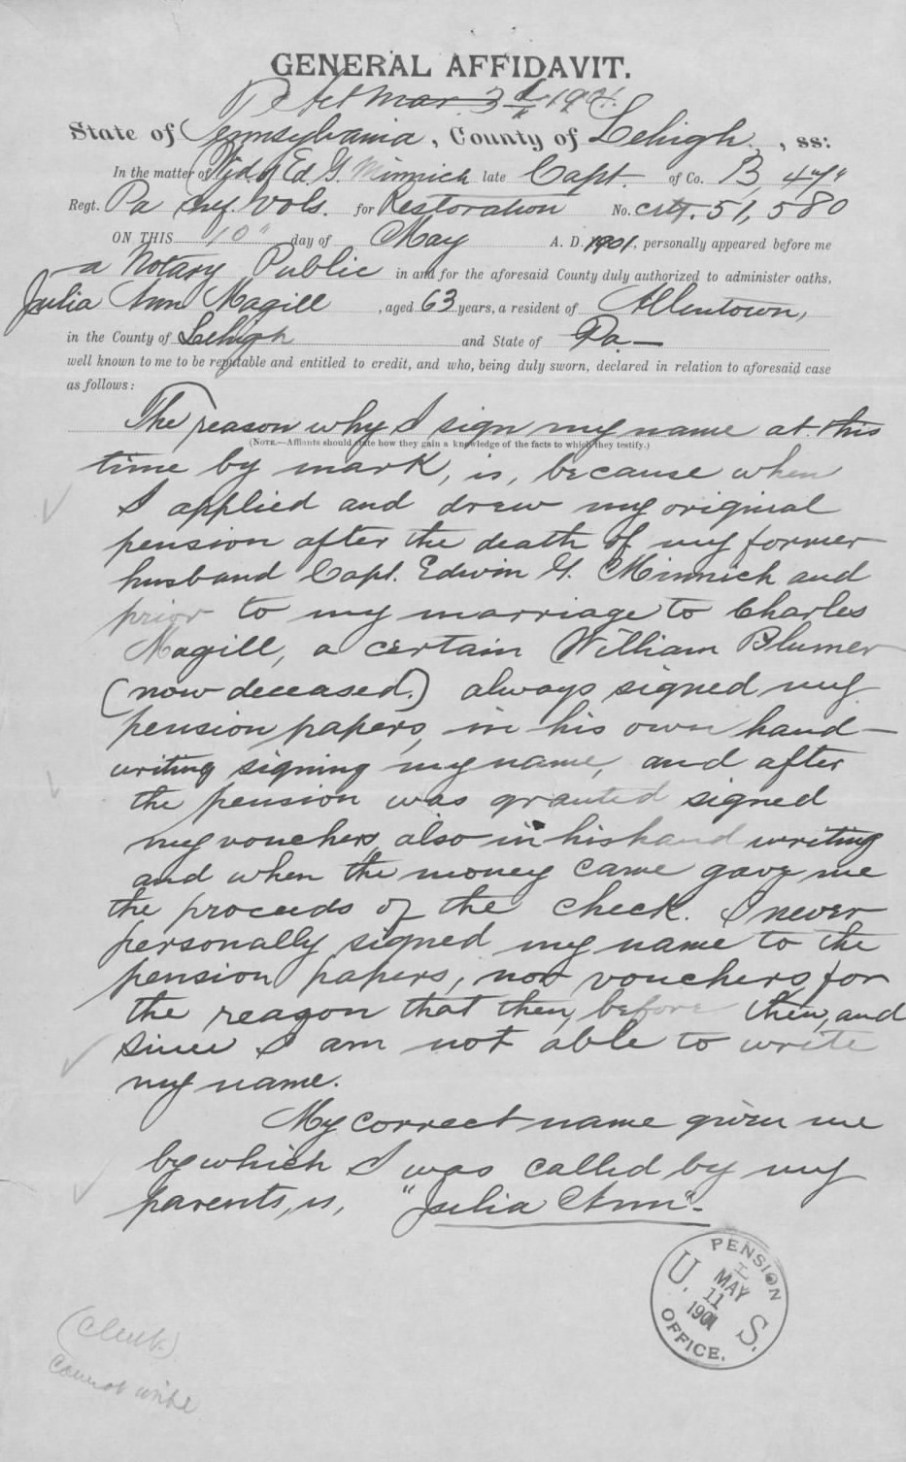 GENERAL AFFIDAVIT.
Act Mar. 3d 1901.
State of Pennsylvania, County of Lehigh, ss:
In the matter of Wid. of Ed. G. Minnich late Capt. of Co. B, 47"
Regt. Pa Inf. Vols. for Restoration No. Ctf. 51,580
ON THIS 10" day of May A. D. 1901, personally appeared before me
a Notary Public in and for the aforesaid County duly authorized to administer oaths,
Julia Ann Magill, aged 63 years, a resident of Allentown,
in the County of Lehigh and State of Pa.—
well known to me to be reputable and entitled to credit, and who, being duly sworn, declared in relation to aforesaid case
as follows:
The reason why I sign my name at this
(NOTE.—Affiants should state how they gain a knowledge of the facts to which they testify.)
time by mark, is, because when
I applied and drew my original
pension after the death of my former
husband Capt. Edwin G. Minnich and
prior to my marriage to Charles
Magill, a certain William Blumer
(now deceased.) always signed my
pension papers, in his own hand-
writing signing my name, and after
the pension was granted signed
my vouchers, also in his hand writing
and when the money came gave me
the proceeds of the check. I never
personally signed my name to the
pension papers, nor vouchers, for
the reason that then, before then, and
since I am not able to write
my name.
My correct name given me
by which I was called by my
parents, is, "Julia Ann".
U. S. PENSION OFFICE.
MAY
11
1901
(Clerk)
cannot write